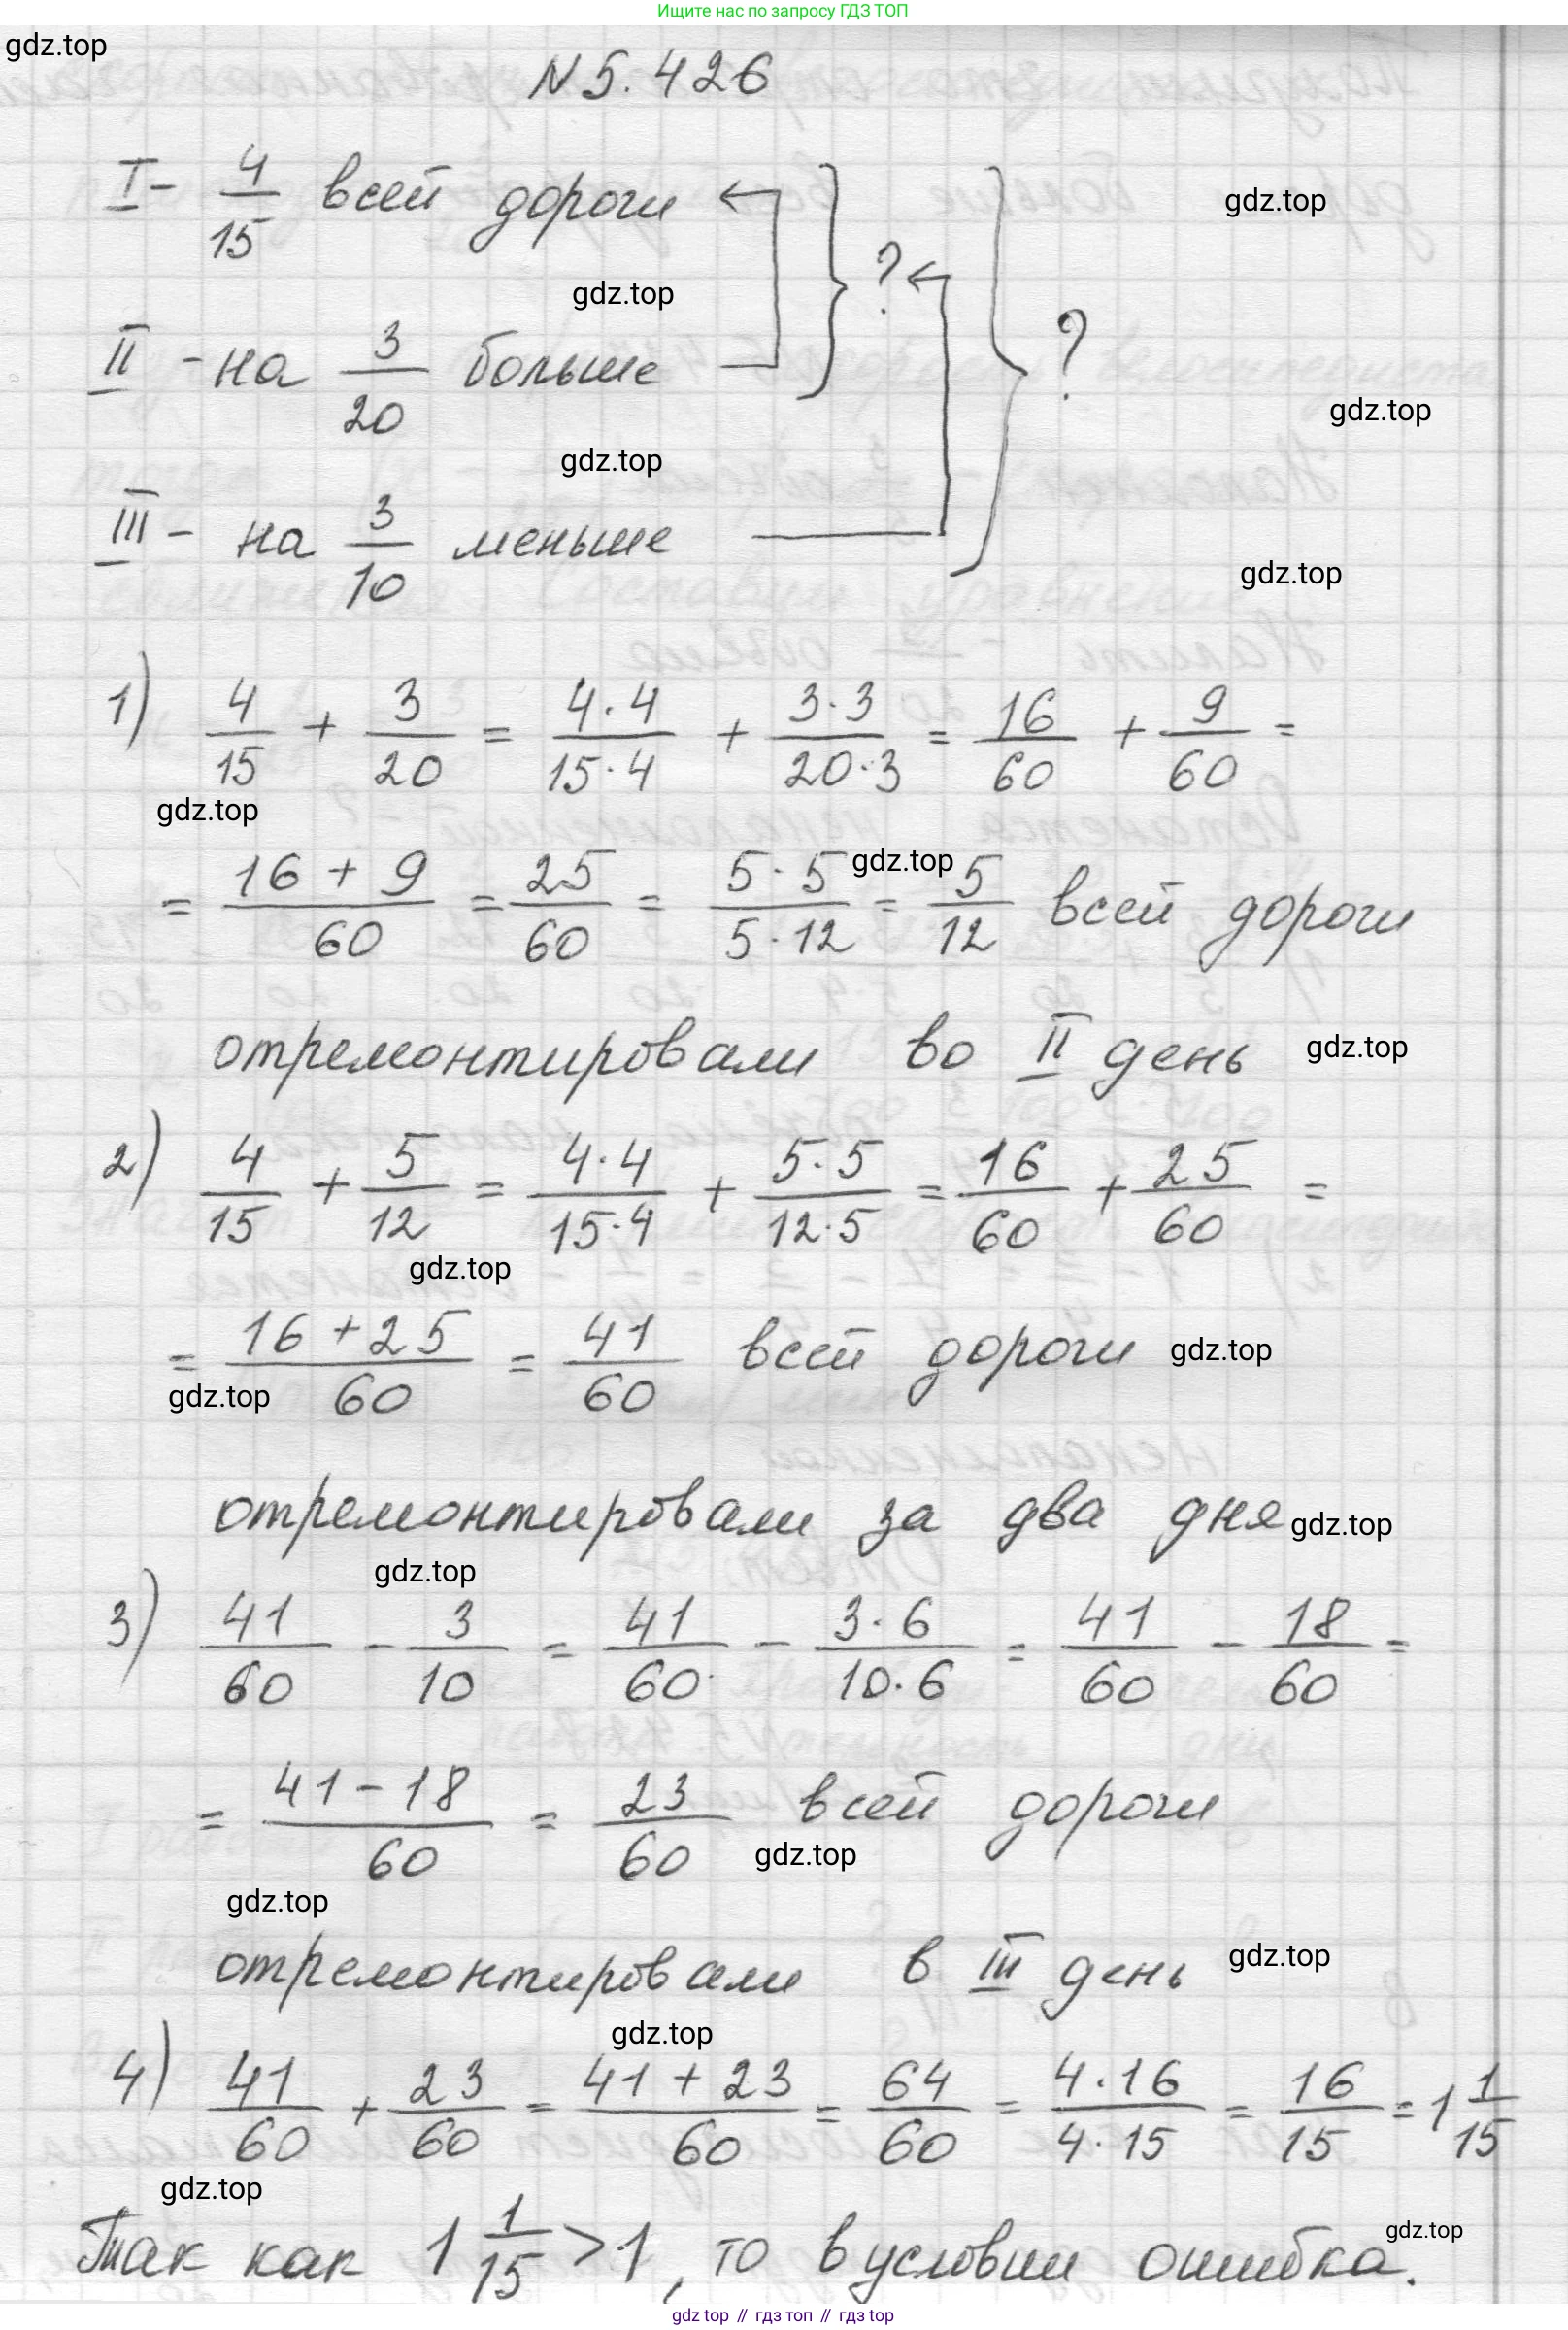 Ищите нас по запросу ГДЗ ТОП
gdz.top
N 5.426
I - 4/15 всей дороги
gdz.top
gdz.top
?
II - на 3/20 больше
?
gdz.top
gdz.top
III - на 3/10 меньше
gdz.top
1) 4/15 + 3/20 = 4·4/15·4 + 3·3/20·3 = 16/60 + 9/60 =
gdz.top
gdz.top
= 16 + 9/60 = 25/60 = 5·5/5·12 = 5/12 всей дороги
отремонтировали во II день
gdz.top
2) 4/15 + 5/12 = 4·4/15·4 + 5·5/12·5 = 16/60 + 25/60 =
gdz.top
= 16 + 25/60 = 41/60 всей дороги
gdz.top
gdz.top
отремонтировали за два дня
gdz.top
gdz.top
3) 41/60 - 3/10 = 41/60 - 3·6/10·6 = 41/60 - 18/60 =
= 41 - 18/60 = 23/60 всей дороги
gdz.top
gdz.top
отремонтировали в III день
gdz.top
gdz.top
4) 41/60 + 23/60 = 41 + 23/60 = 64/60 = 4·16/4·15 = 16/15 = 1 1/15
gdz.top
Так как 1 1/15 > 1, то в условии ошибка.
gdz.top
gdz top // гдз топ // гдз top